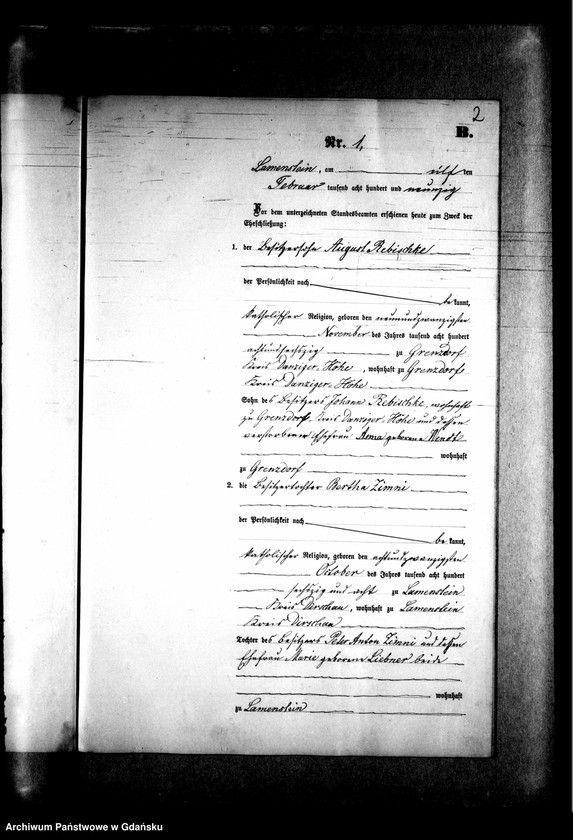 2
B.
Nr. 1,
Lamenstein, am elften
Februar tausend acht hundert und neunzig
Vor dem unterzeichneten Standesbeamten erschienen heute zum Zweck der
Eheschließung:
1. der Besitzersohn August Rebischke
der Persönlichkeit nach
be kannt,
katholischer Religion, geboren den neunundzwanzigsten
November des Jahres tausend acht hundert
achtundsechszig zu Grenzdorf
Kreis Danziger Höhe, wohnhaft zu Grenzdorf,
Kreis Danziger Höhe
Sohn des Besitzers Johann Rebischke, wohnhaft
zu Grenzdorf, Kreis Danziger Höhe und dessen
verstorbenen Ehefrau Anna geborene Wendt
wohnhaft
zu Grenzdorf
2. die Besitzertochter Bertha Zimni
der Persönlichkeit nach
be kannt,
katholischer Religion, geboren den achtundzwanzigsten
October des Jahres tausend acht hundert
sechszig und acht zu Lamenstein
Kreis Dirschau, wohnhaft zu Lamenstein
Kreis Dirschau
Tochter des Besitzers Peter Anton Zimni und dessen
Ehefrau Marie geborene Liebner beide
wohnhaft
zu Lamenstein
Archiwum Państwowe w Gdańsku